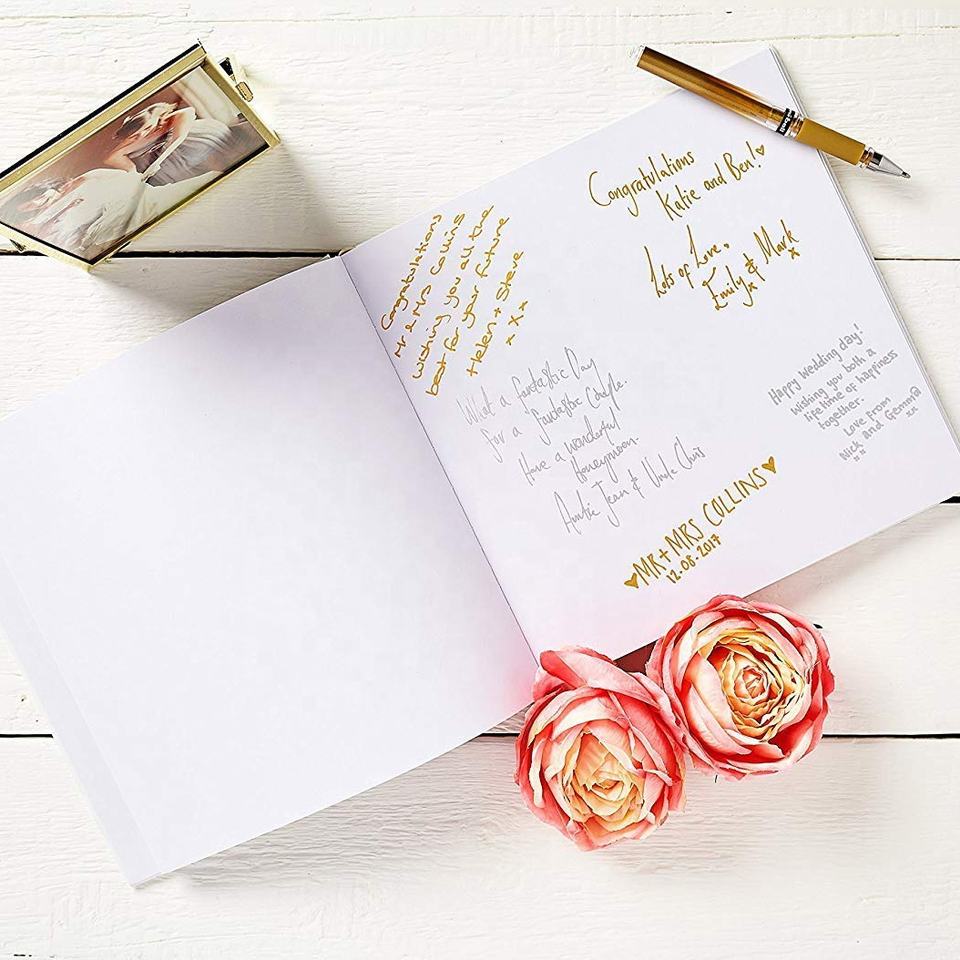 Congratulations
Mr & Mrs Collins
wishing you all the
best for your future
Helen + Steve
x x x
Congratulations
Katie and Ben!
Lots of Love,
Emily & Mark
x x
What a fantastic Day
for a fantastic Couple.
Have a wonderful
Honeymoon.
Auntie Jean & Uncle Chris
Happy Wedding day!
Wishing you both a
life time of happiness
together.
Love from
Nick and Gemma
xx xx
MR + MRS COLLINS
12.08.2017